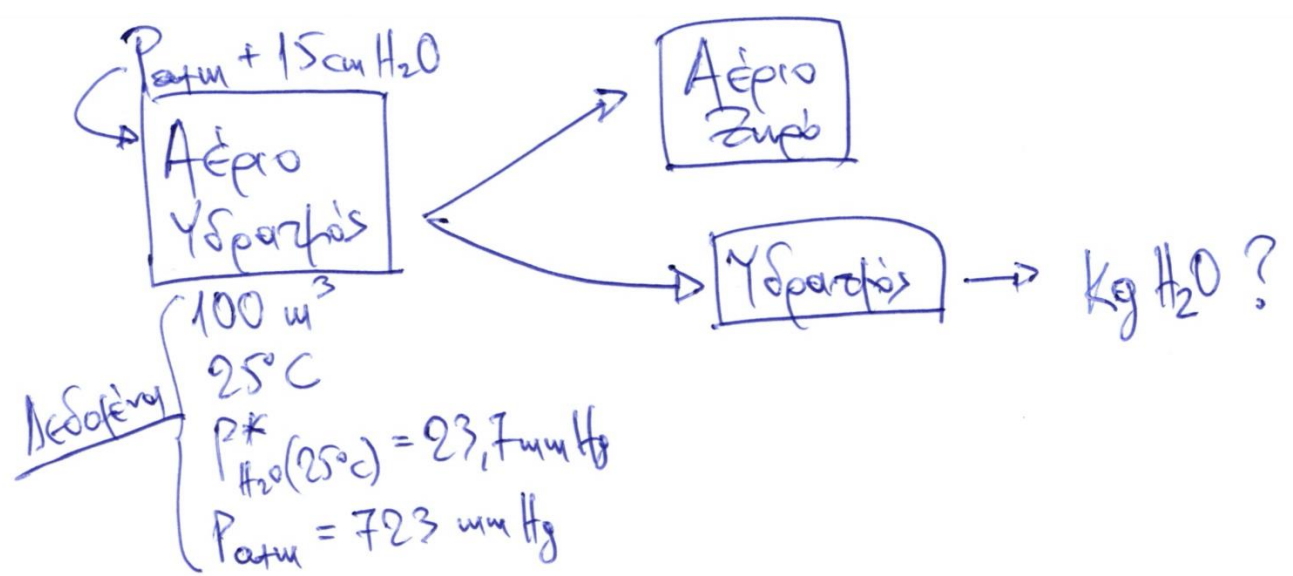 Patm + 15cm H₂O
Αέριο
Υδρατμός
Αέριο
Ξηρό
Υδρατμός → Kg H₂O ?
Δεδομένα
100 m³
25°C
P*H₂O(25°C) = 23,7mm Hg
Patm = 723 mm Hg